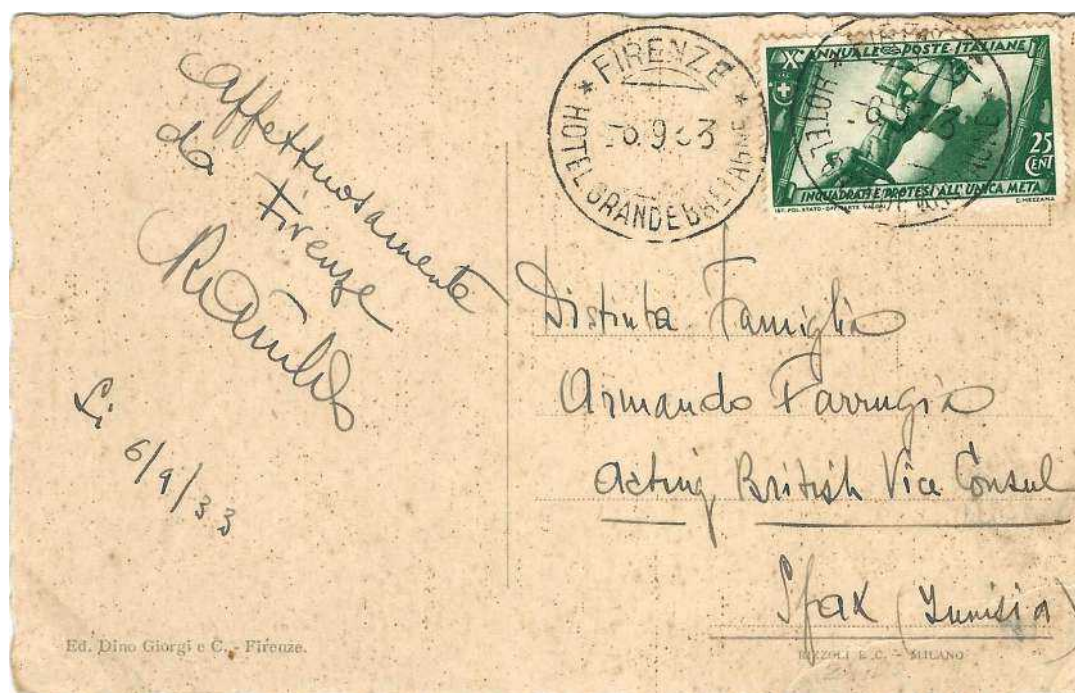 Affettuosamente
da Firenze
Li 6/9/33
Ed. Dino Giorgi e C. - Firenze.
* FIRENZE *
-6.9 33
HOTEL GRANDE BRETAGNE
Xº ANNUALE POSTE ITALIANE
25
CENT
INQUADRATI E PROTESI ALL'UNICA META
IST. POL. STATO-OFF. CARTE VALORI
C. MEZZANA
Distinta Famiglia
Armando Farrugia
Acting British Vice Consul
Sfax (Tunisia)
RIZZOLI E C. - MILANO